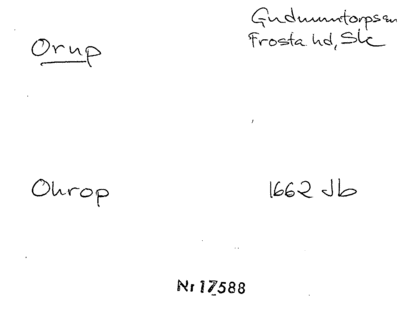 Orup
Gudmuntorps sn
Frosta hd, Sk
Ohrop
1662 Jb
Nr 17588